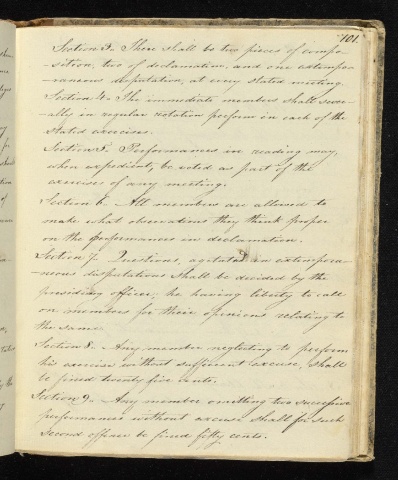 101.
Section 3. There shall be two pieces of compo-
-sition, two of declamation, and one extempo-
-raneous disputation, at every stated meeting.
Section 4. The immediate members shall sever-
-ally in regular rotation perform in each of the
stated exercises.
Section 5. Performances in reading may,
when expedient, be voted as part of the
exercises of any meeting.
Section 6. All members are allowed to
make what observations they think proper
on the performances in declamation.
Section 7. Questions, agitated in extempora-
-neous disputations shall be decided by the
presiding officer, he having liberty to call
on members for their opinions relating to
the same.
Section 8. Any member neglecting to perform
his exercise without sufficient excuse, shall
be fined twenty five cents.
Section 9. Any member omitting two successive
performances without excuse shall for such
second offence be fined fifty cents.